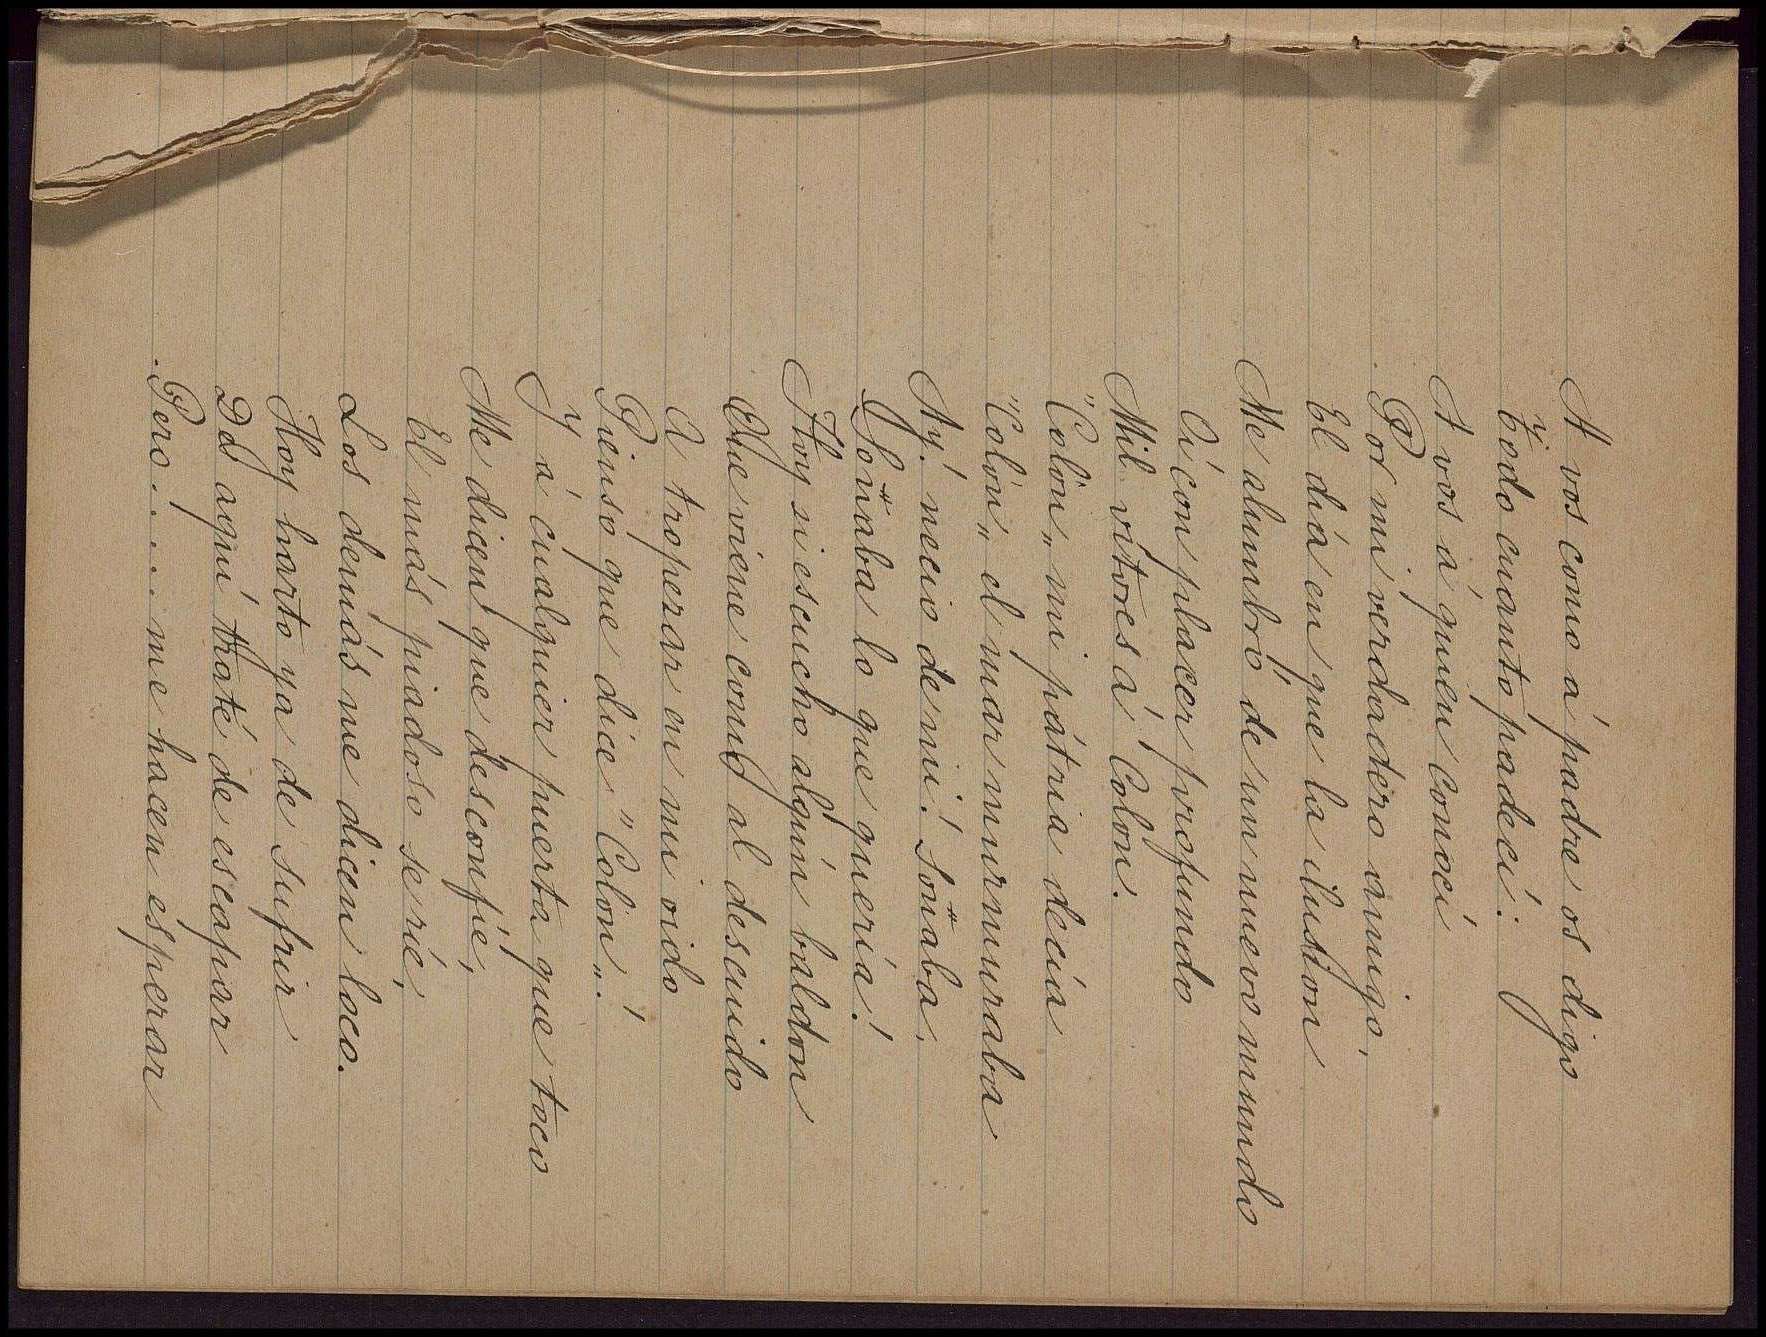 A vos como á padre os digo
Todo cuanto padecí:
A vos á quien conocí
Por mi verdadero amigo,
El diá en que la ilusion
Me alumbró de un nuevo mundo
Oí con placer profundo
Mil vítores á Colon.
"Colon„ mi pátria decía
"Colon„ el mar murmuraba
Ay! necio de mi! Soñaba,
Soñaba lo que quería!
Hoy si escucho algún baldon
Que viene como al descuido
A tropezar en mi oido
Pienso que dice "Colon„!
Y á cualquier puerta que toco
Me dicen que desconfíe,
El más piadoso se ríe,
Los demás me dicen loco.
Hoy harto ya de sufrir
De aquí traté de escapar
Pero..... me hacen esperar